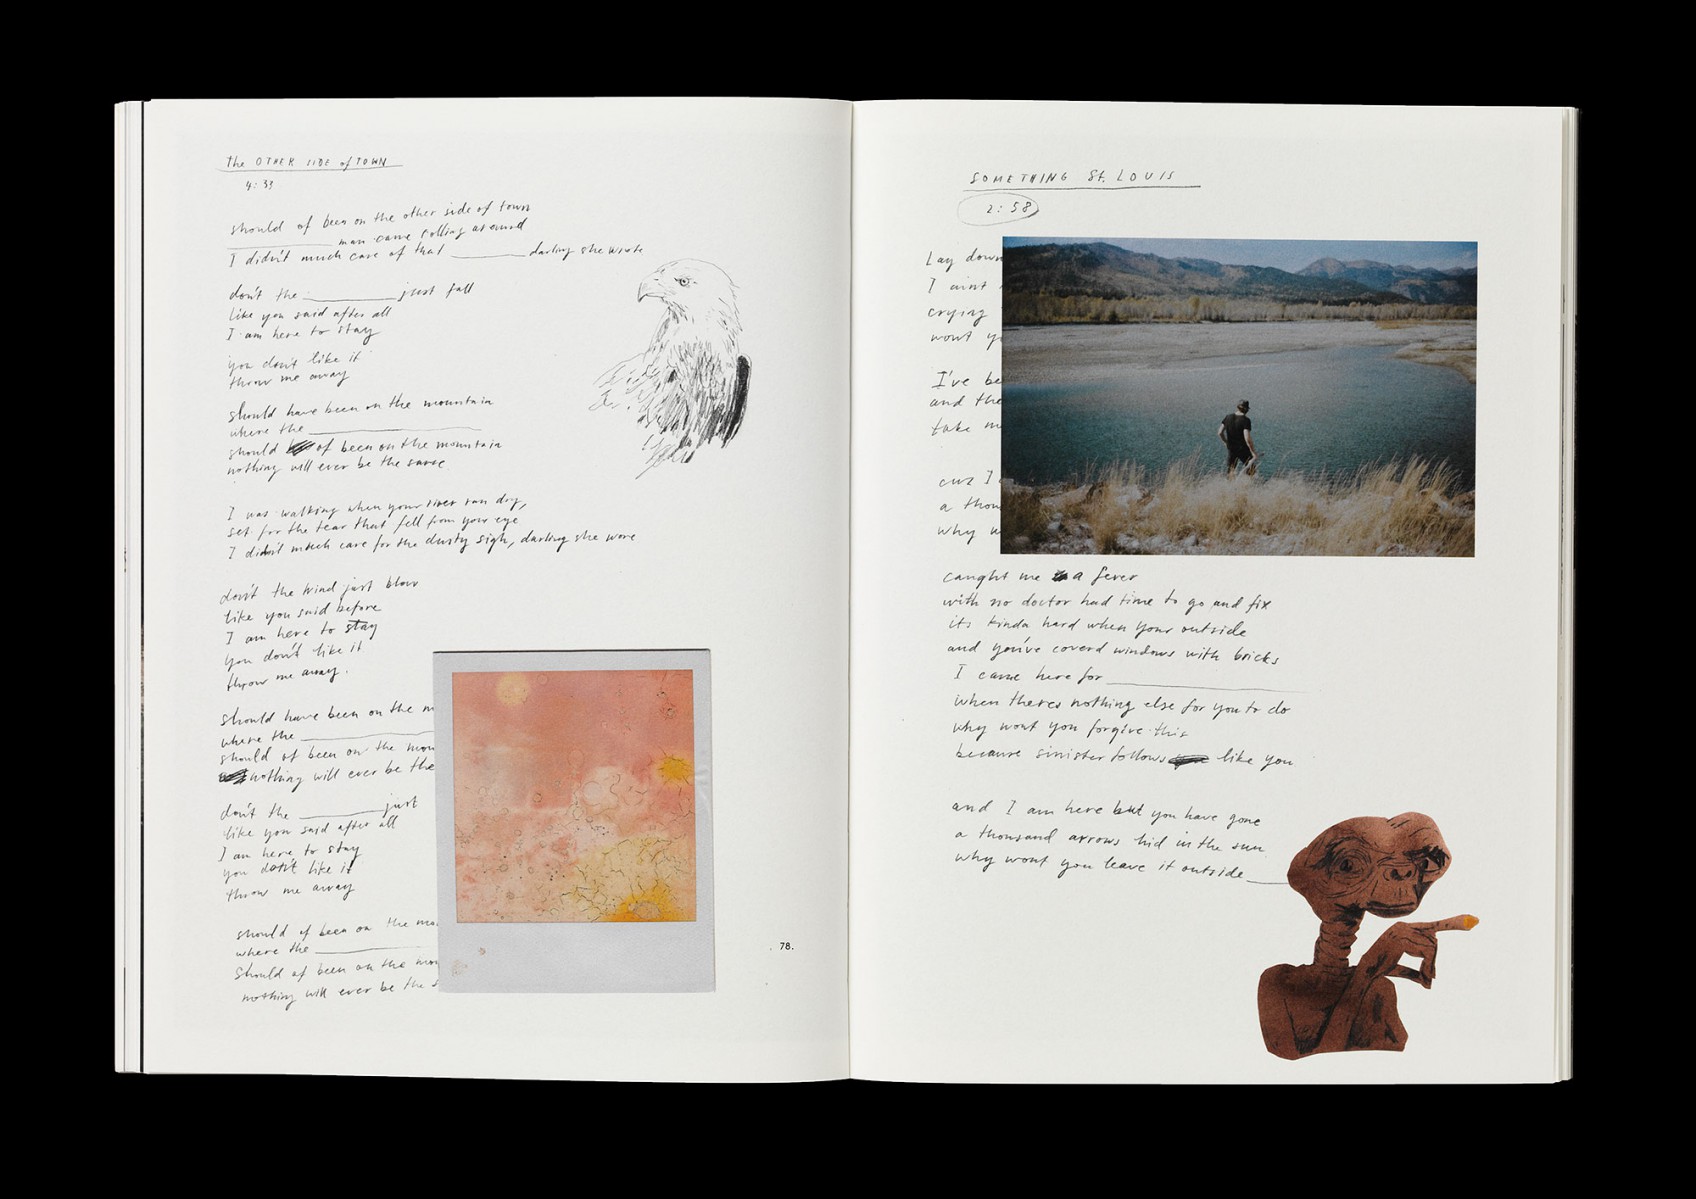 The OTHER SIDE of TOWN
4:33
should of been on the other side of town
__________ man came rolling around
I didn't much care of that ________ darling she wrote
don't the __________ just fall
like you said after all
I am here to stay
you don't like it
throw me away
should have been on the mountain
where the __________
should of been on the mountain
nothing will ever be the same
I was walking when your river ran dry,
set for the tear that fell from your eye
I didn't much care for the dusty sigh, darling she wore
don't the wind just blow
like you said before
I am here to stay
you don't like it
throw me away.
should have been on the m
where the __________
should of been on the moun
nothing will ever be the
don't the __________ just
like you said after all
I am here to stay
you don't like it
throw me away
should of been on the mo
where the __________
should of been on the moun
nothing will ever be the s
78.
SOMETHING St. LOUIS
2:58
Lay down
I aint
crying
wont y
I've be
and the
take m
cuz I
a thou
why w
caught me a fever
with no doctor had time to go and fix
its kinda hard when your outside
and you've coverd windows with bricks
I came here for __________
when theres nothing else for you to do
why wont you forgive this
because sinister follows like you
and I am here but you have gone
a thousand arrows hid in the sun
why wont you leave it outside ____